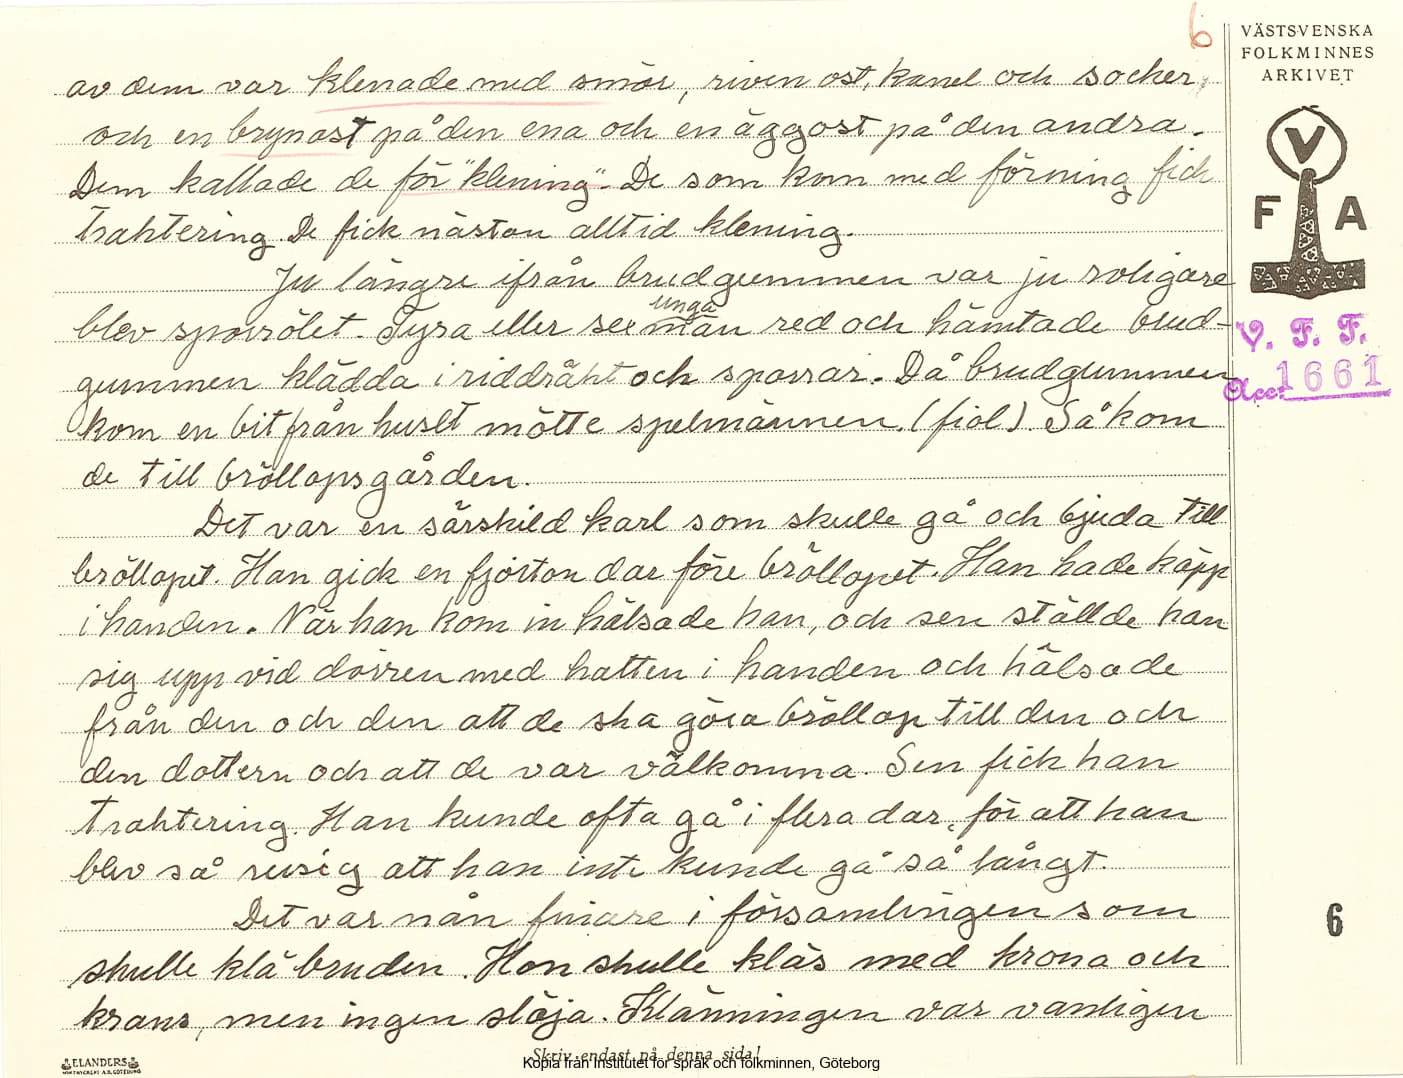 6
VÄSTSVENSKA
FOLKMINNES
ARKIVET
V
F A
V. F. F.
Acc: 1661
av dem var klenade med smör, riven ost, kanel och socker,
och en brynost på den ena och en äggost på den andra.
Dem kallade de för "klening". De som kom med förning fick
traktering. De fick nästan alltid klening.
Ju längre ifrån brudgummen var ju roligare
blev sporrölet. Fyra eller sex unga män red och hämtade brud-
gummen klädda i riddräkt och sporrar. Då brudgummen
kom en bit från huset mötte spelmännen. (fiol). Så kom
de till bröllopsgården.
Det var en särskild karl som skulle gå och bjuda till
bröllopet. Han gick en fjorton dar före bröllopet. Han hade käpp
i handen. När han kom in hälsade han, och sen ställde han
sig upp vid dörren med hatten i handen och hälsade
från den och den att de ska göra bröllop till den och
den dottern och att de var välkomna. Sen fick han
traktering. Han kunde ofta gå i flera dar, för att han
blev så rusig att han inte kunde gå så långt.
Det var nån finare i församlingen som
skulle klä bruden. Hon skulle kläs med krona och
krans, men ingen slöja. Klänningen var vanligen
6
Skriv endast på denna sida!
ELANDERS
Kopia från Institutet för språk och folkminnen, Göteborg